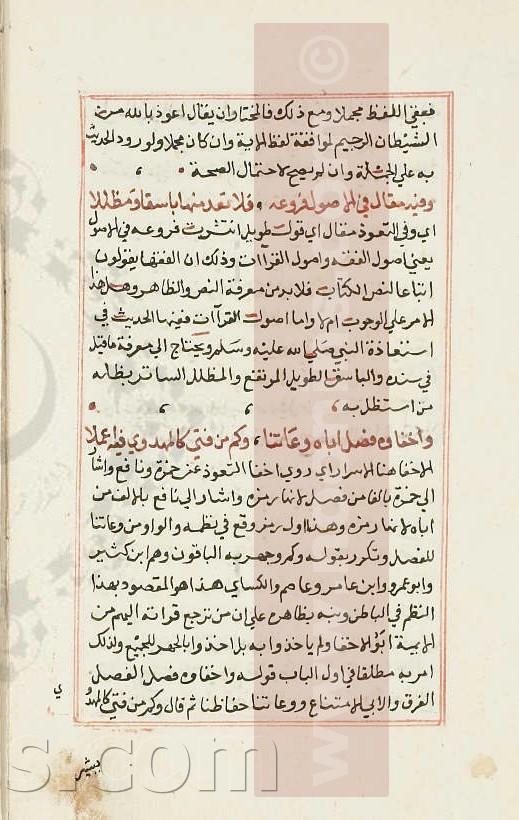 فبقي اللفظ مجملا ومع ذلك فالمختار ان يقال اعوذ بالله من
الشيطان الرجيم لموافقة لفظ الاية وان كان مجملا ولورود الحديث
به علي الجملة وان لم يصح لاحتمال الصحة
وفيه مقال في الاصول فروعه فلا تعد منها باسقا ومظللا
اي وفي التعوذ مقال اي قول طويل انتشرت فروعه في الاصول
يعني اصول الفقه واصول القراآت وذلك ان الفقها يقولون
اتباعا لنص الكتاب فلابد من معرفة النص والظاهر وهل هذا
الامر علي الوجوب ام لا واما اصول القراآت ففيها الحديث في
استعاذة النبي صلي الله عليه وسلم ويحتاج الي معرفة ما قيل
في سنده والباسق الطويل المرتفع والمظلل الساتر بظله
من استظل به
واخفاوه فصل اباه وعاتنا وكم من فتي كالمهدوي فيه اعملا
الاخفا هنا الاسرار اي روي اخفا التعوذ عن حمزة ونافع واشار
الي حمزة بالفا من فصل لانها رمزه واشار الي نافع بالالف من
اباه لانها رمزه وهذا اول رمز وقع في نظمه والواو من وعاتنا
للفصل وتكرر بقوله وكم وجهر به الباقون وهم ابن كثير
وابو عمرو وابن عامر وعاصم والكساي هذا هو المقصود بهذا
النظم في الباطن ونبه بظاهره علي ان من ترجع قراته اليهم من
الايمة ابوا الاخفا ولم ياخذوا به بل اخذوا بالجهر للجميع ولذلك
امر به مطلقا في اول الباب قوله واخفاوه فصل الفصل
الفرق والابي الامتناع ووعاتنا حفاظنا ثم قال وكم من فتي كالمهدو
ي
s.com